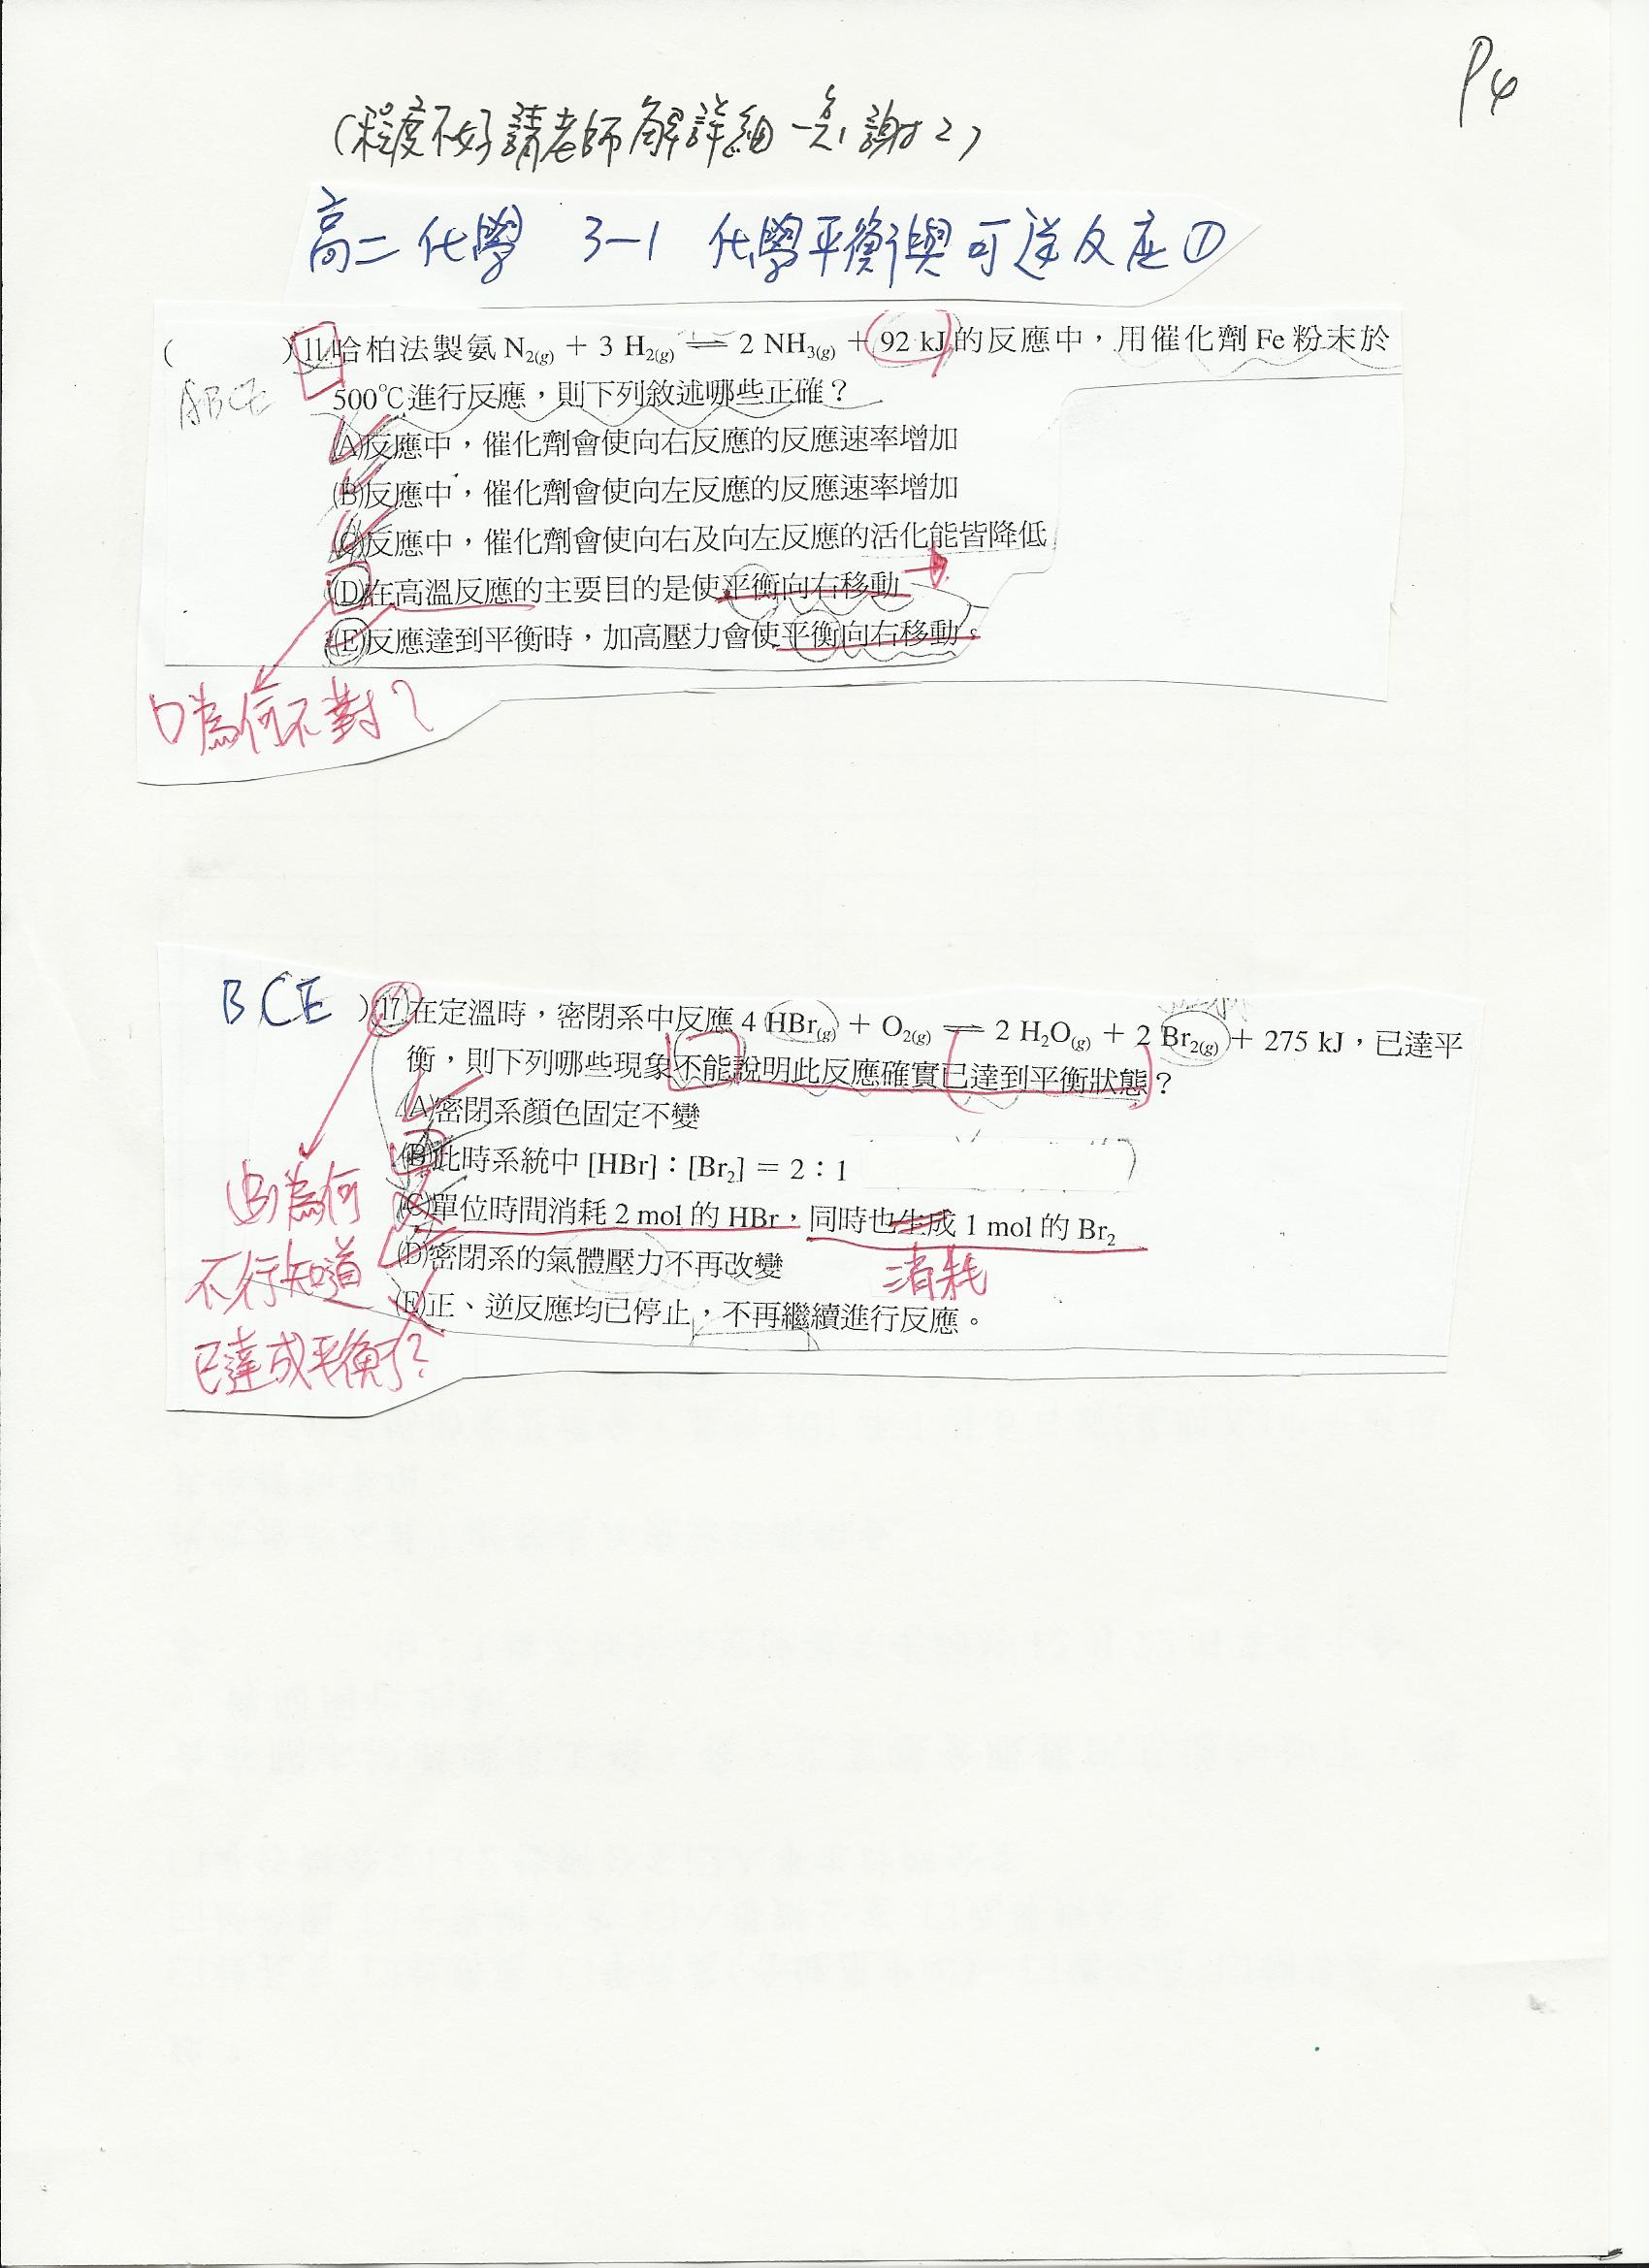 P4
(程度不好請老師解詳細一點,謝謝)
高二化學 3-1 化學平衡與可逆反應①
( )11.哈柏法製氨 N2(g) + 3 H2(g) ⇌ 2 NH3(g) + 92 kJ 的反應中,用催化劑 Fe 粉末於
ABCE
500℃進行反應,則下列敘述哪些正確?
(A)反應中,催化劑會使向右反應的反應速率增加
(B)反應中,催化劑會使向左反應的反應速率增加
(C)反應中,催化劑會使向右及向左反應的活化能皆降低
(D)在高溫反應的主要目的是使平衡向右移動
(E)反應達到平衡時,加高壓力會使平衡向右移動。
D為何不對?
BCE )17.在定溫時,密閉系中反應 4 HBr(g) + O2(g) ⇌ 2 H2O(g) + 2 Br2(g) + 275 kJ,已達平
衡,則下列哪些現象不能說明此反應確實已達到平衡狀態?
(A)密閉系顏色固定不變
(B)此時系統中 [HBr]:[Br2] = 2:1
(C)單位時間消耗 2 mol 的 HBr,同時也生成 1 mol 的 Br2
消耗
(D)密閉系的氣體壓力不再改變
(E)正、逆反應均已停止,不再繼續進行反應。
(B)為何
不行知道
已達成平衡了?